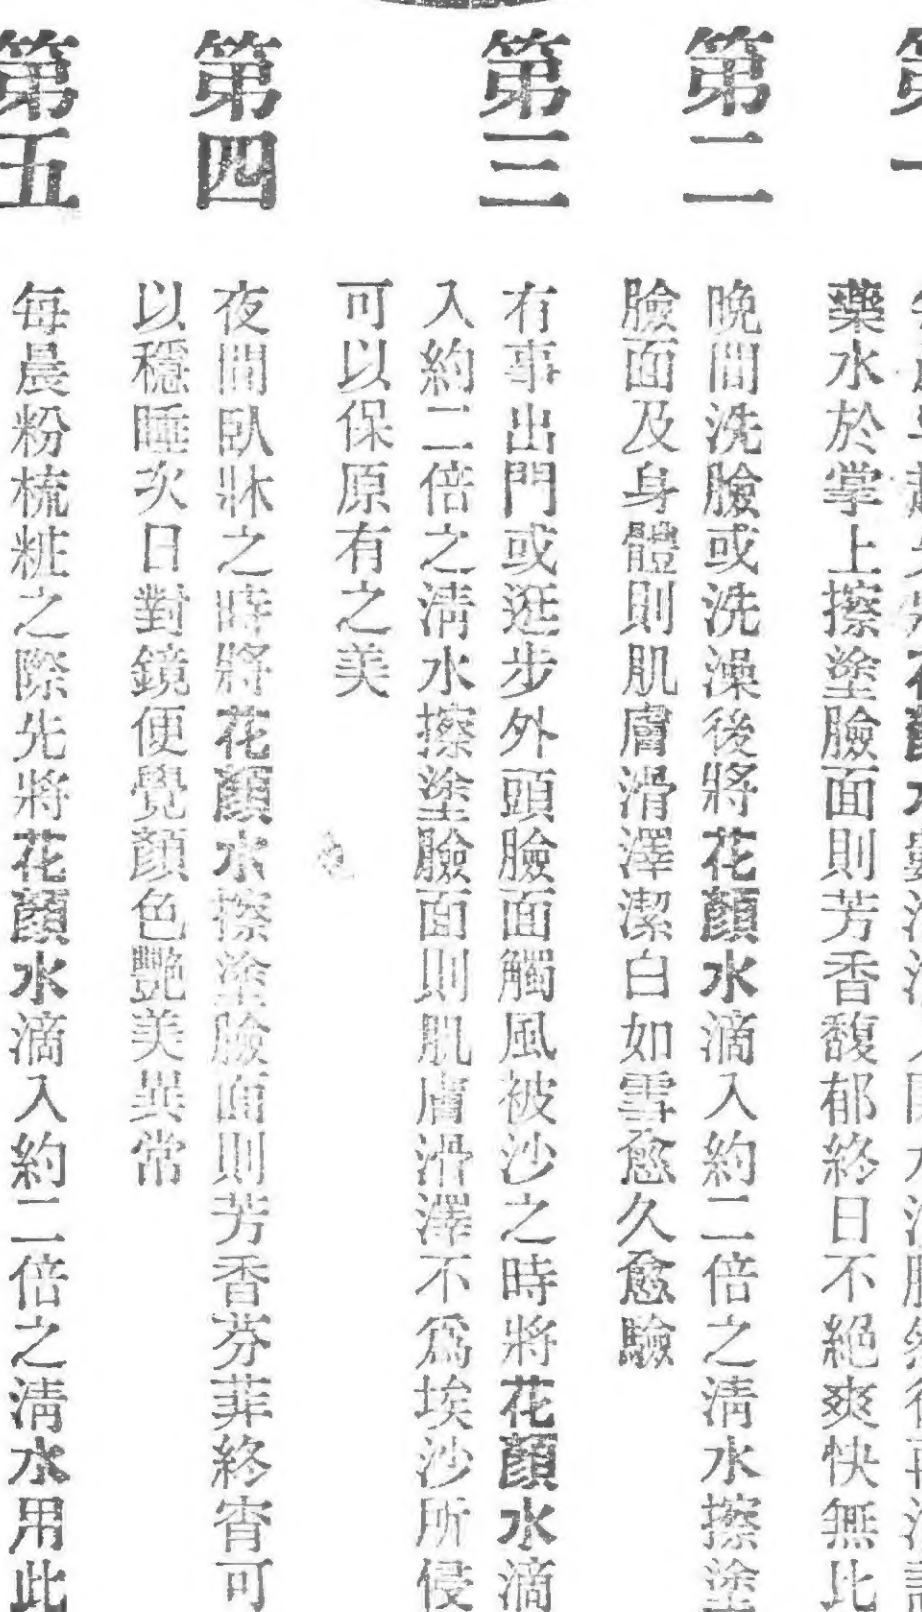 第一
藥水於掌上擦塗臉面則芳香馥郁終日不絕爽快無比
第二
晚間洗臉或洗澡後將花顏水滴入約二倍之清水擦塗
臉面及身體則肌膚滑澤潔白如雪愈久愈驗
第三
有事出門或逛步外頭臉面觸風被沙之時將花顏水滴
入約二倍之清水擦塗臉面則肌膚滑澤不爲埃沙所侵
可以保原有之美
第四
夜間臥牀之時將花顏水擦塗臉面則芳香芬菲終宵可
以穩睡次日對鏡便覺顏色艷美異常
第五
每晨粉梳粧之際先將花顏水滴入約二倍之清水用此